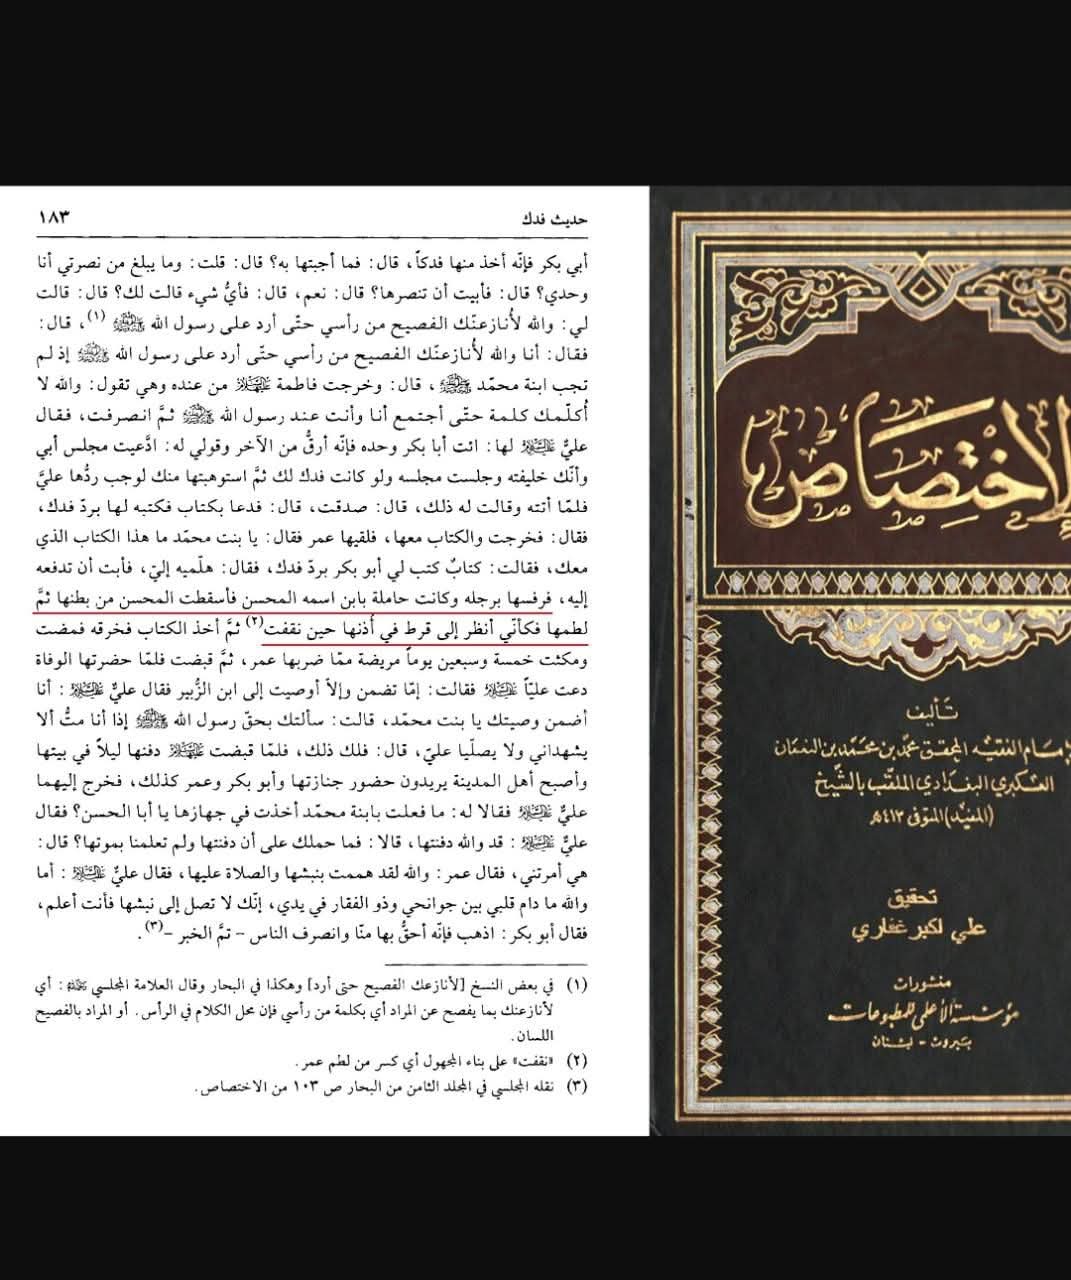 حديث فدك
١٨٣
أبي بكر فإنّه أخذ منها فدكاً، قال: فما أجبتها به؟ قال: قلت: وما يبلغ من نصرتي أنا
وحدي؟ قال: فأبيت أن تنصرها؟ قال: نعم، قال: فأيُّ شيء قالت لك؟ قال: قالت
لي: والله لأُنازعنّك الفصيح من رأسي حتّى أرد على رسول الله ﷺ (١)، قال:
فقال: أنا والله لأُنازعنّك الفصيح من رأسي حتّى أرد على رسول الله ﷺ إذ لم
تجب ابنة محمّد ﷺ، قال: وخرجت فاطمة عليها السلام من عنده وهي تقول: والله لا
أُكلّمك كلمة حتّى أجتمع أنا وأنت عند رسول الله ﷺ ثمَّ انصرفت، فقال
عليٌّ عليه السلام لها: ائت أبا بكر وحده فإنّه أرقُّ من الآخر وقولي له: ادَّعيت مجلس أبي
وأنّك خليفته وجلست مجلسه ولو كانت فدك لك ثمَّ استوهبتها منك لوجب ردُّها عليَّ
فلمّا أتته وقالت له ذلك، قال: صدقت، قال: فدعا بكتاب فكتبه لها بردّ فدك،
فقال: فخرجت والكتاب معها، فلقيها عمر فقال: يا بنت محمّد ما هذا الكتاب الذي
معك، فقالت: كتابٌ كتب لي أبو بكر بردّ فدك، فقال: هلّميه إليّ، فأبت أن تدفعه
إليه، فرفسها برجله وكانت حاملة بابن اسمه المحسن فأسقطت المحسن من بطنها ثمَّ
لطمها فكأنّي أنظر إلى قرط في أُذنها حين نقفت(٢) ثمَّ أخذ الكتاب فخرقه فمضت
ومكثت خمسة وسبعين يوماً مريضة ممّا ضربها عمر، ثمَّ قبضت فلمّا حضرتها الوفاة
دعت عليّاً عليه السلام فقالت: إمّا تضمن وإلاّ أوصيت إلى ابن الزُّبير فقال عليٌّ عليه السلام: أنا
أضمن وصيتك يا بنت محمّد، قالت: سألتك بحقّ رسول الله ﷺ إذا أنا متُّ ألا
يشهداني ولا يصلّيا عليّ، قال: فلك ذلك، فلمّا قبضت عليها السلام دفنها ليلاً في بيتها
وأصبح أهل المدينة يريدون حضور جنازتها وأبو بكر وعمر كذلك، فخرج إليهما
عليٌّ عليه السلام فقالا له: ما فعلت بابنة محمّد أخذت في جهازها يا أبا الحسن؟ فقال
عليٌّ عليه السلام: قد والله دفنتها، قالا: فما حملك على أن دفنتها ولم تعلمنا بموتها؟ قال:
هي أمرتني، فقال عمر: والله لقد هممت بنبشها والصلاة عليها، فقال عليٌّ عليه السلام: أما
والله ما دام قلبي بين جوانحي وذو الفقار في يدي، إنّك لا تصل إلى نبشها فأنت أعلم،
فقال أبو بكر: اذهب فإنّه أحقُّ بها منّا وانصرف الناس – تمَّ الخبر –(٣).
(١) في بعض النسخ [لأنازعك الفصيح حتى أرد] وهكذا في البحار وقال العلامة المجلسي رحمه الله: أي
لأنازعنك بما يفصح عن المراد أي بكلمة من رأسي فإن محل الكلام في الرأس. أو المراد بالفصيح
اللسان.
(٢) «نقفت» على بناء المجهول أي كسر من لطم عمر.
(٣) نقله المجلسي في المجلد الثامن من البحار ص ١٠٣ من الاختصاص.
الإختصاص
تأليف
الإمام الفقيه المحقق محمد بن محمد بن النعمان
العكبري البغدادي الملقب بالشيخ
(المفيد) المتوفى ٤١٣هـ
تحقيق
علي اكبر غفاري
منشورات
مؤسسة الأعلى للمطبوعات
بيروت - لبنان